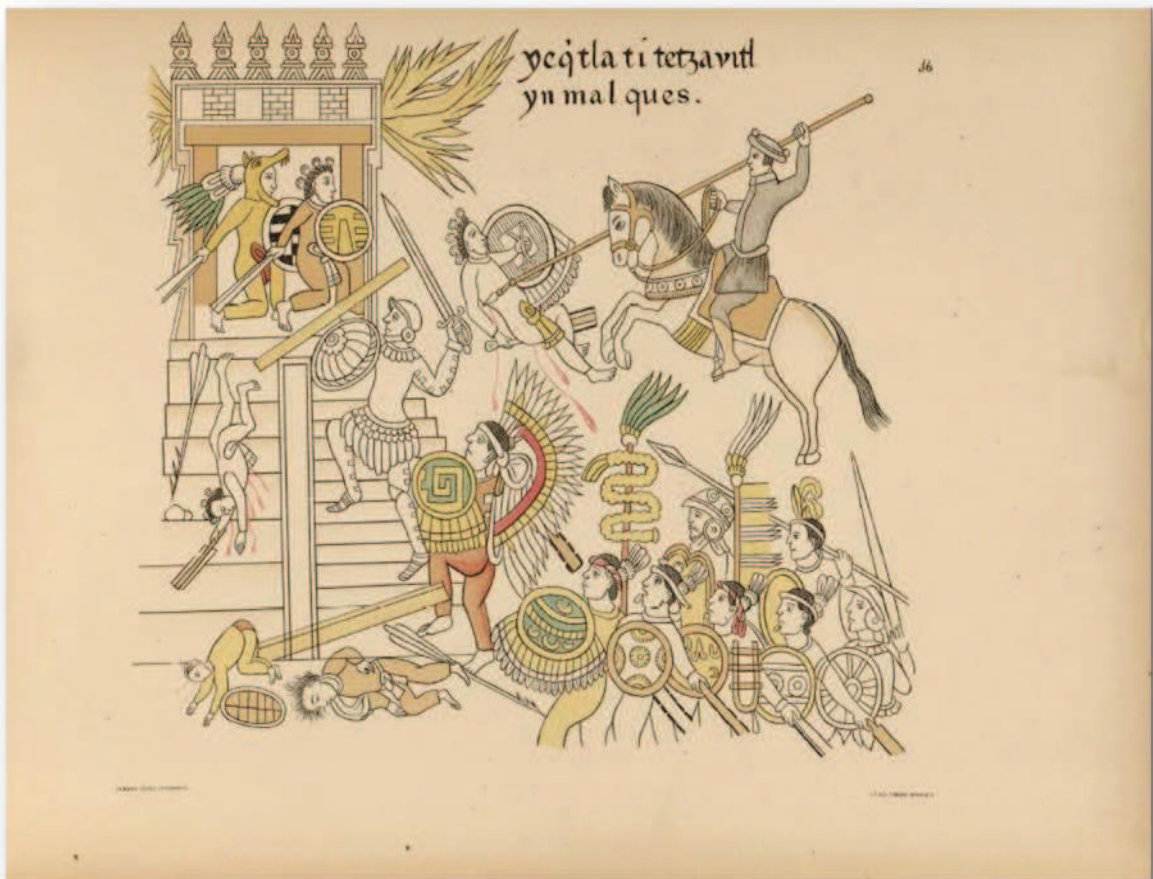 ycq̇tla ti tetzavitl
yn mal ques.
36